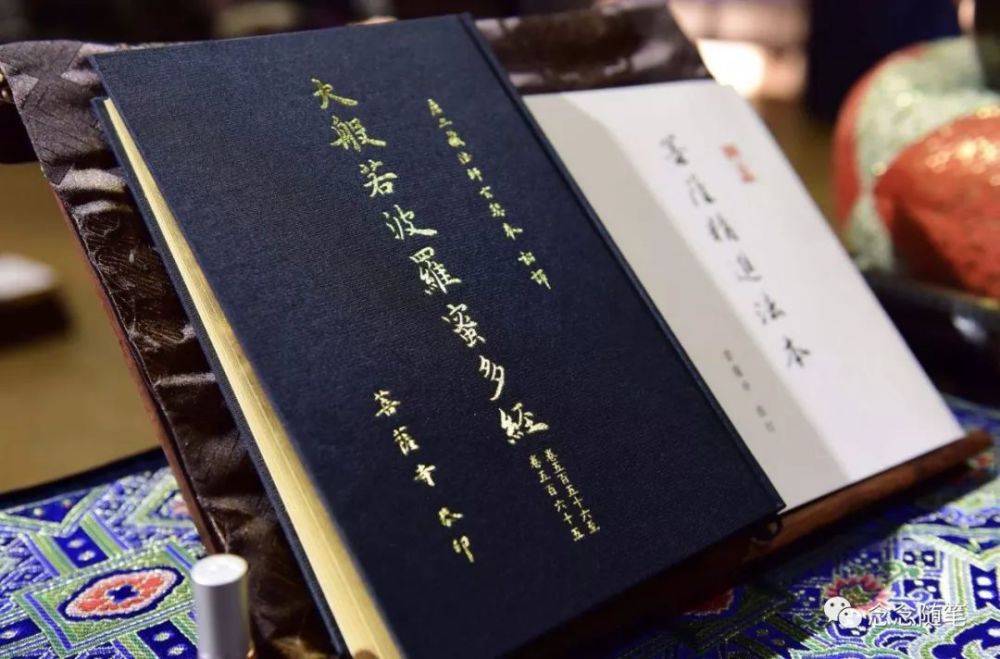 唐三藏法師玄奘奉詔譯
大般若波羅蜜多經
卷五百五十六至
卷五百六十五
菩薩寺 印
菩薩精進法本
菩薩寺
念念随笔